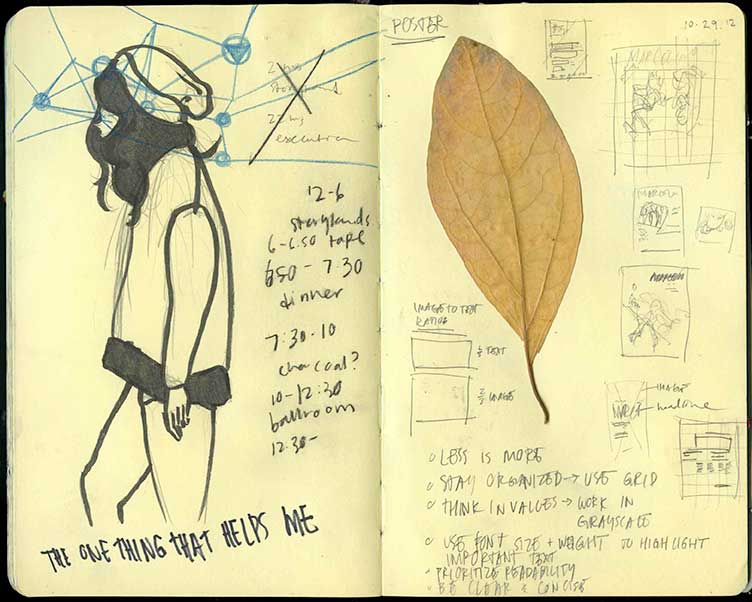 2 hrs
22 hrs
execution
12-6
6-6:50 tape
650 - 7:30
dinner
7:30-10
charcoal?
10-12:30
ballroom
12:30-
THE ONE THING THAT HELPS ME
POSTER
10.29.12
IMAGE TO TEXT
RATIO
⅓ TEXT
⅔ IMAGE
IMAGE
headline
LESS IS MORE
STAY ORGANIZED → USE GRID
THINK IN VALUES → WORK IN
GRAYSCALE
USE FONT SIZE + WEIGHT TO HIGHLIGHT
IMPORTANT TEXT
PRIORITIZE READABILITY
BE CLEAR & CONCISE